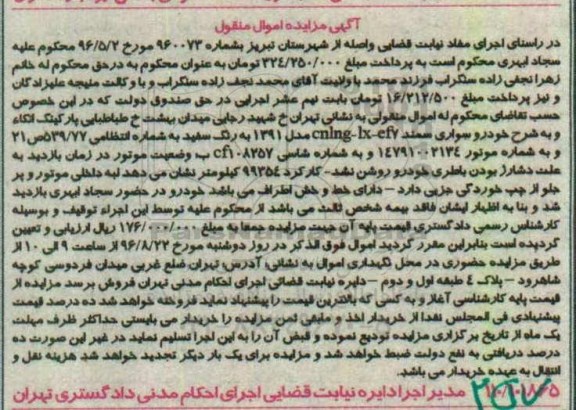 آگهی مزایده اموال منقول
در راستای اجرای مفاد نیابت قضایی واصله از شهرستان تبریز بشماره ۹۶۰۰۷۳ مورخ ۹۶/۵/۲ محکوم علیه
سجاد ابهری محکوم است به پرداخت مبلغ ۳۲۴/۲۵۰/۰۰۰ تومان به عنوان محکوم به درحق محکوم له خانم
زهرا نجفی زاده سنگراب فرزند محمد با ولایت آقای محمد نجف زاده سنگراب و با وکالت منیجه علیزادگان
و نیز پرداخت مبلغ ۱۶/۲۱۲/۵۰۰ تومان بابت نیم عشر اجرایی در حق صندوق دولت که در این خصوص
حسب تقاضای محکوم له اموال منقولی به نشانی تهران خ شهید رجایی میدان بهشت خ طباطبایی پارکینگ اتکاء
و به شرح خودرو سواری سمند cnlng-lx-ef۷ مدل ۱۳۹۱ به رنگ سفید به شماره انتظامی ۵۳۹/۷۷ص۲۱
و به شماره موتور ۱۴۷۹۱۰۰۲۱۳۴ و به شماره شاسی cf۱۰۸۲۵۷ ب وضعیت موتور در زمان بازدید به
علت دشارژ بودن باطری خودرو روشن نشد- کارکرد ۹۹۳۵۴ کیلومتر نشان می دهد لبه داخلی موتور و پر
جلو از چپ خوردگی جزیی دارد – دارای خط و خش اطراف می باشد خودرو در حضور سجاد ابهری بازدید
شد و بنا به اظهار ایشان فاقد بیمه شخص ثالث می باشد از محکوم علیه توسط این اجراء توقیف و بوسیله
کارشناس رسمی دادگستری قیمت پایه آن جهت مزایده جمعا به مبلغ ۱۷۶/۰۰۰/۰۰۰ ریال ارزیابی و تعیین
گردیده است بنابراین مقرر گردید اموال فوق الذکر در روز دوشنبه مورخ ۹۶/۸/۲۲ از ساعت ۹ الی ۱۰ از
طریق مزایده حضوری در محل نگهداری اموال به نشانی: آدرس: تهران ضلع غربی میدان فردوسی کوچه
شاهرود – پلاک ٤ طبقه اول و دوم – دایره نیابت قضائی اجرای احکام مدنی تهران فروش برسد مزایده از
قیمت پایه کارشناسی آغاز و به کسی که بالاترین قیمت را پیشنهاد نماید فروخته خواهد شد ده درصد قیمت
پیشنهادی فی المجلس نقدا از خریدار اخذ و مابقی ثمن مزایده را خریدار می بایستی حداکثر ظرف مهلت
یک ماه از تاریخ برگزاری مزایده تودیع نموده و قبض آن را به این اجرا تسلیم نماید در غیر این صورت ده
درصد دریافتی به نفع دولت ضبط خواهد شد و مزایده برای یک بار دیگر تجدید خواهد شد هزینه نقل و
انتقال به عهده خریدار می باشد.
مدیر اجرا دایره نیابت قضایی اجرای احکام مدنی دادگستری تهران